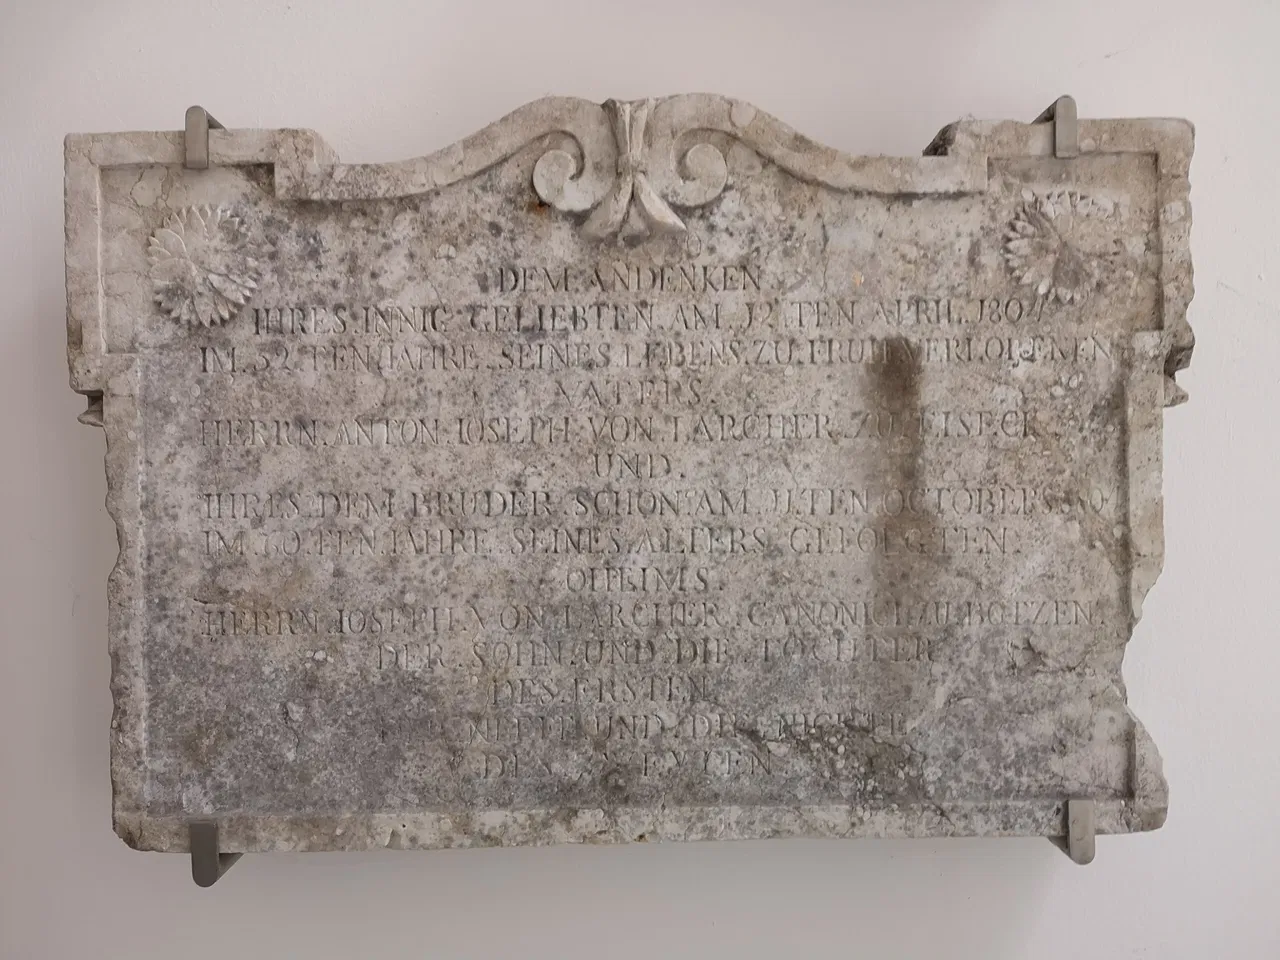 DEM. ANDENKEN
IHRES. INNIG. GELIEBTEN. AM. 12. TEN. APRIL.
IM. 52. TEN. IAHRE. SEINES. LEBENS. ZU. FRUH. VERLOHRENEN
VATERS.
HERRN. ANTON. IOSEPH. VON. LARCHER. ZU. EISECK.
UND.
IHRES. DEM. BRUDER. SCHON. AM. 11. TEN. OCTOBERS.
IM. 60. TEN. IAHRE. SEINES. ALTERS. GEFOLGTEN.
OHEIMS.
HERRN. IOSEPH. VON. LARCHER. CANONICI. ZU. BOTZEN.
DER. SOHN. UND. DIE. TOCHTER
DES. ERSTEN.
DER. NEFFE. UND. DIE. NICHTE
DES. ZWEYTEN